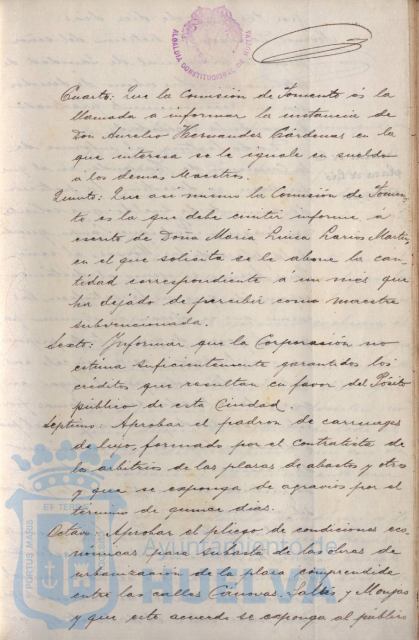 ALCALDIA CONSTITUCIONAL DE HUELVA
Cuarto: Que la Comisión de Fomento es la
llamada a informar la instancia de
Don Aurelio Hernandez Cárdenas en la
que interesa se le iguale en sueldo
a los demás Maestros.
Quinto: Que asi mismo la Comisión de Fomen-
to es la que debe emitir informe a
escrito de Doña Maria Luisa Larios Martin
en el que solicita se le abone la can-
tidad correspondiente á un mes que
ha dejado de percibir como maestra
subvencionada.
Sexto: Informar que la Corporación no
estima suficientemente garantidos los
créditos que resultan en favor del Pósito
público de esta Ciudad.
Septimo: Aprobar el padron de carruages
de lujo, formado por el Contratista de
los arbitrios de las plazas de abastos y otros
y que se exponga de agravios por el
termino de quince dias.
Octavo: Aprobar el pliego de condiciones eco-
nómicas para subasta de las obras de
urbanización de la plaza comprendida
entre las calles Cánovas, Saltés y Monjas
y que este acuerdo se exponga al público
PORTUS MARIS ET TERRAE
Ayuntamiento de
HUELVA